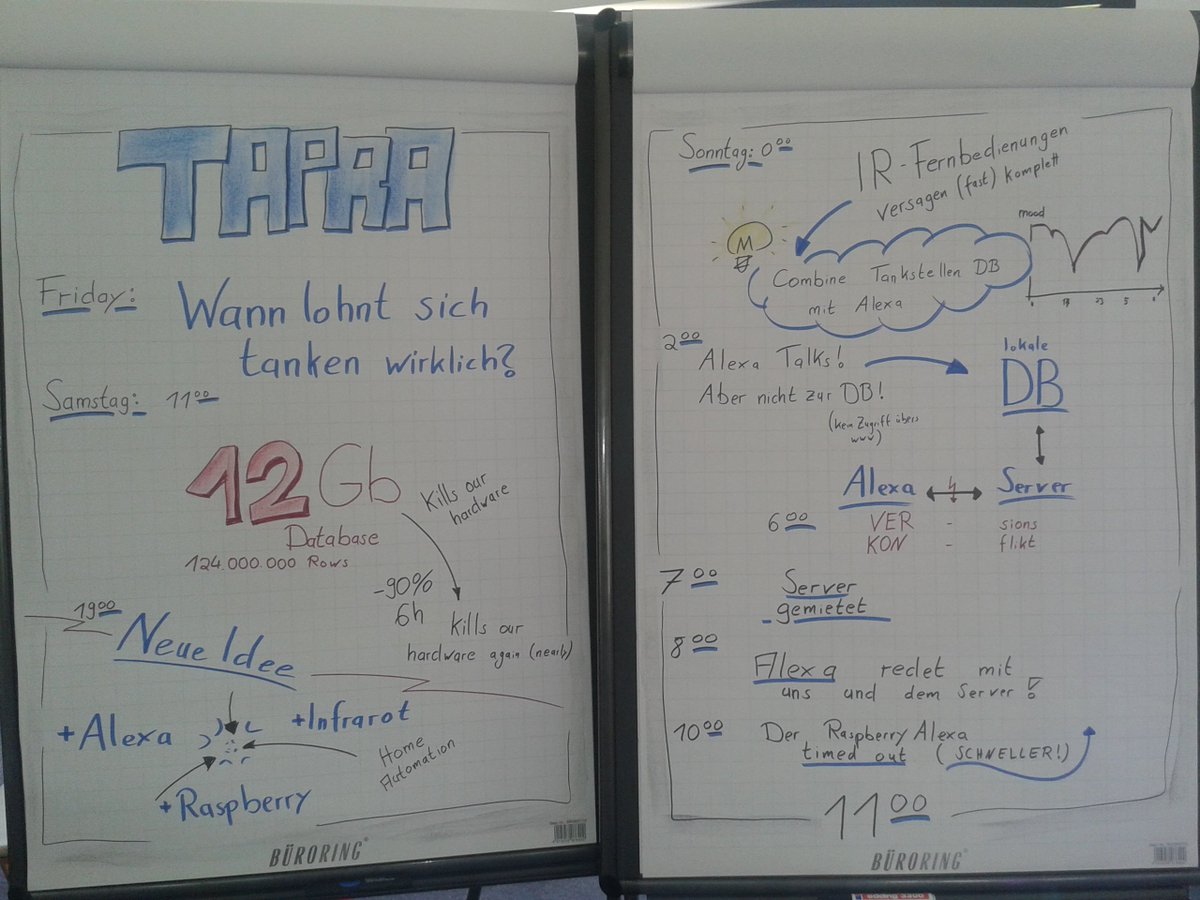 TAPRA
Friday:
Wann lohnt sich
tanken wirklich?
Samstag: 11 00
12 Gb
Database
124.000.000 Rows
Kills our
hardware
-90%
6h
Kills our
hardware again (nearly)
19 00
Neue Idee
+Alexa
+Infrarot
Home
Automation
+Raspberry
BÜRORING®
Sonntag: 0 00
IR-Fernbedienungen
versagen (fast) komplett
M
Combine Tankstellen DB
mit Alexa
mood
2 00
Alexa Talks!
Aber nicht zur DB!
(kein Zugriff übers
www)
lokale
DB
Alexa
Server
6 00
VER - sions
KON - flikt
7 00
Server
gemietet
8 00
Alexa redet mit
uns und dem Server!
10 00
Der Raspberry Alexa
timed out (SCHNELLER!)
11 00
BÜRORING®